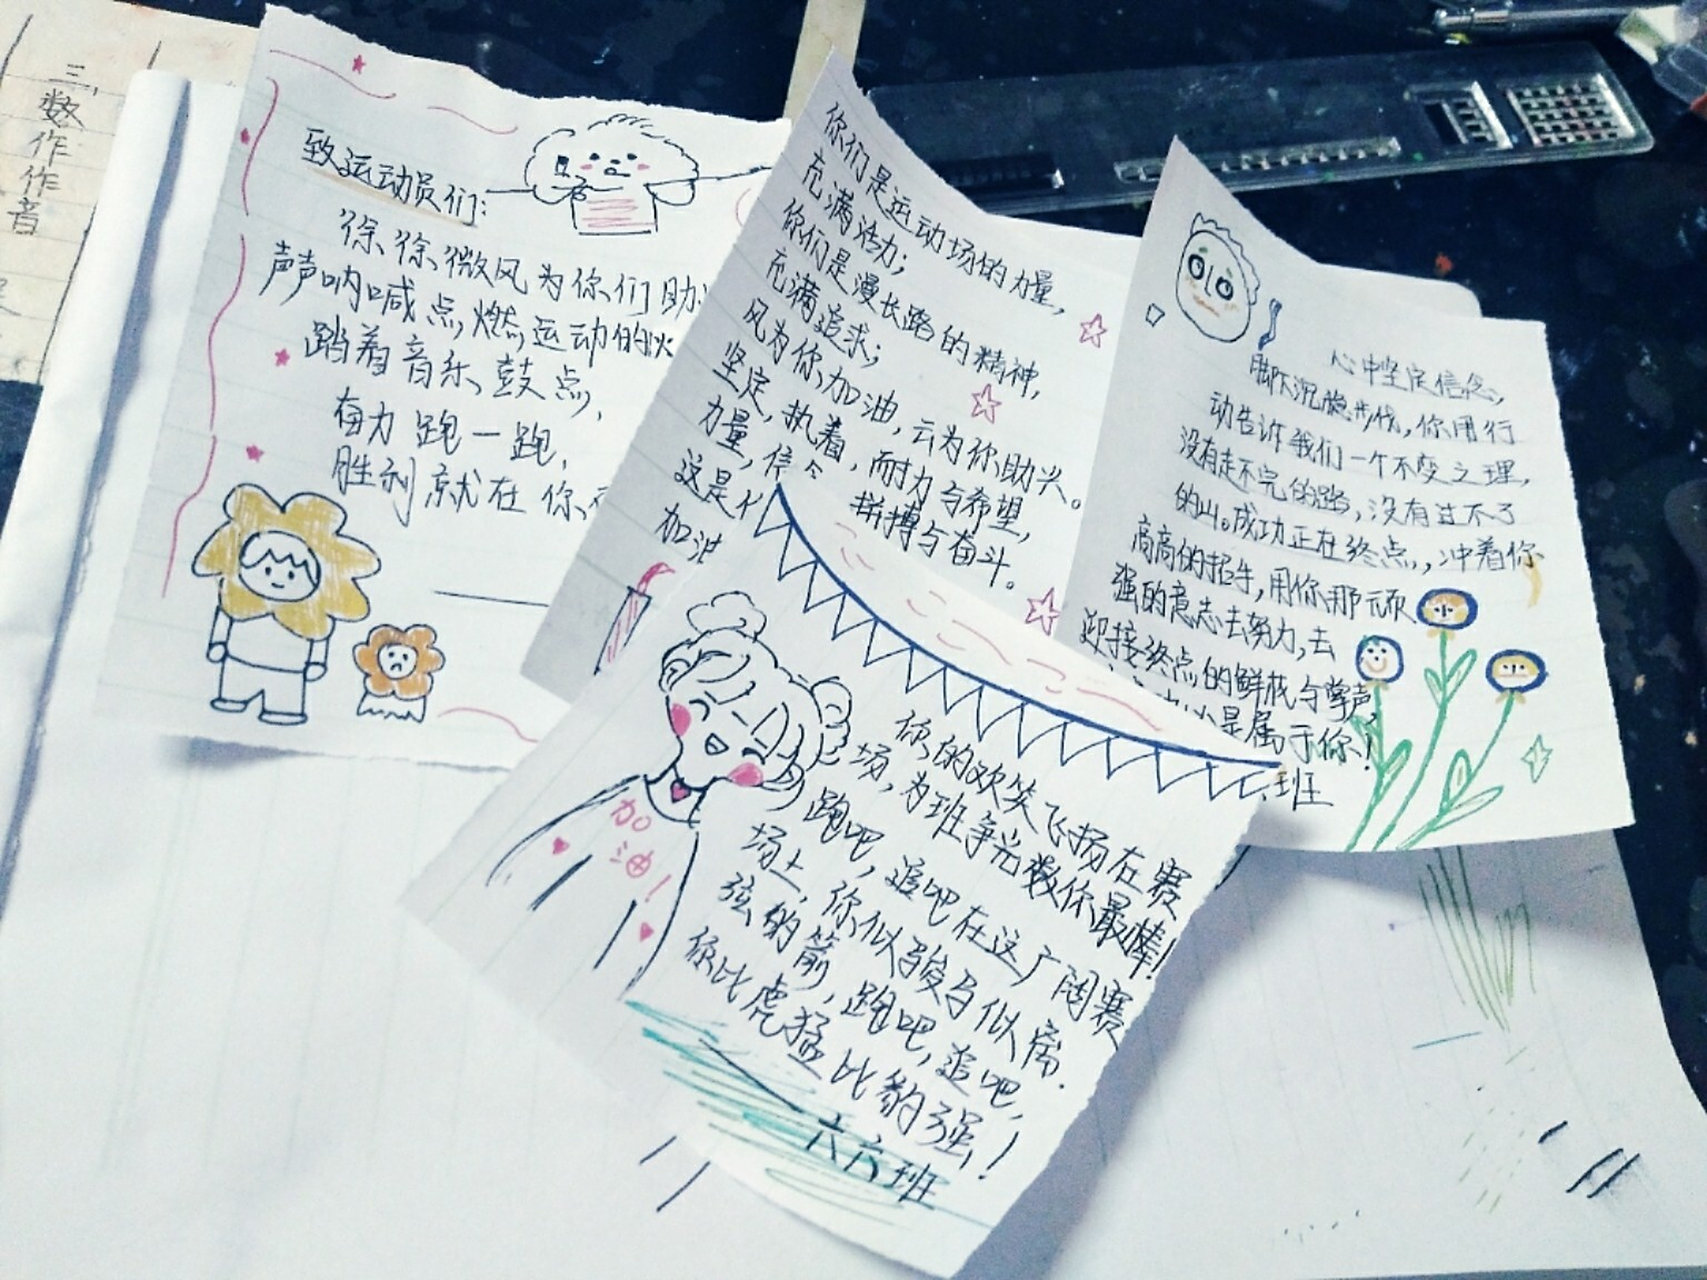 三、数
作
作
音
致运动员们:
徐徐微风为你们助
声声呐喊点燃运动的火
踏着音乐鼓点,
奋力跑一跑,
胜利就在你
你们是运动场的力量,
充满活力;
你们是漫长路的精神,
充满追求;
风为你加油,云为你助兴。
坚定,执着,耐力与希望,
力量,信 拼搏与奋斗。
这是
加油
心中坚定信念,
脚下沉稳步伐,你用行
动告诉我们一个不变之理,
没有走不完的路,没有过不了
的山。成功正在终点,冲着你
高高的招手,用你那顽
强的意志去努力,去
迎接终点的鲜花与掌声,
是属于你!
班
加
油!
你的欢笑飞扬在赛
场,为班争光数你最棒!
跑吧,追吧在这广阔赛
场上,你似骏马似离
弦的箭,跑吧,追吧,
你比虎猛比豹强!
六六班